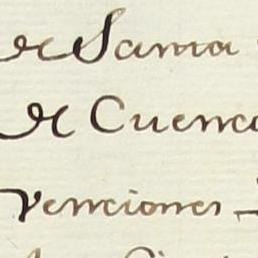 de Santa
de Cuenca
venciones